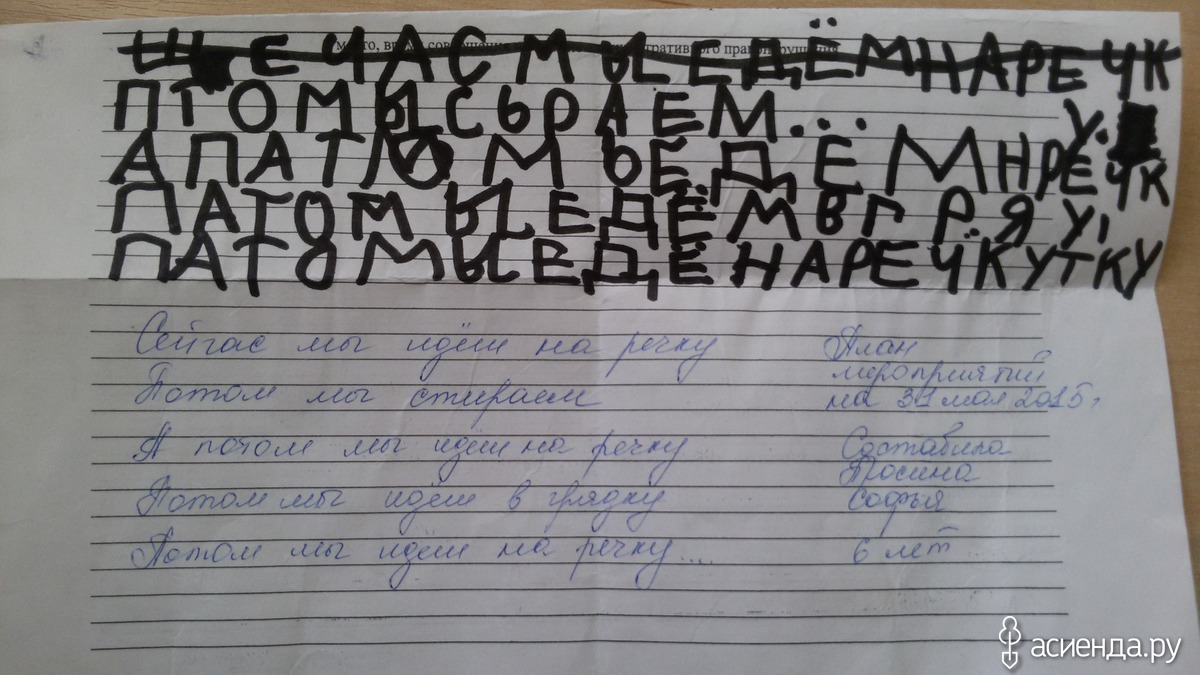 место, вр
ЩЕЧАС МЫ ЕДЁМ НАРЕЧК
ПТОМЫ СЬРАЕМ... У.
АПАТОМ ЫЕДЁМ НРЕЧК
ПАТОМ ЫЕДЁМ ВГРЯ У,
ПАТОМЫ ЕДЁ НАРЕЧКУ ТКУ
Сейчас мы идём на речку
Потом мы стираем
А потом мы идём на речку
Потом мы идём в грядку
Потом мы идём на речку...
План
мероприятий
на 31 мая 2015 г
Составила
Софья
6 лет
асиенда.ру